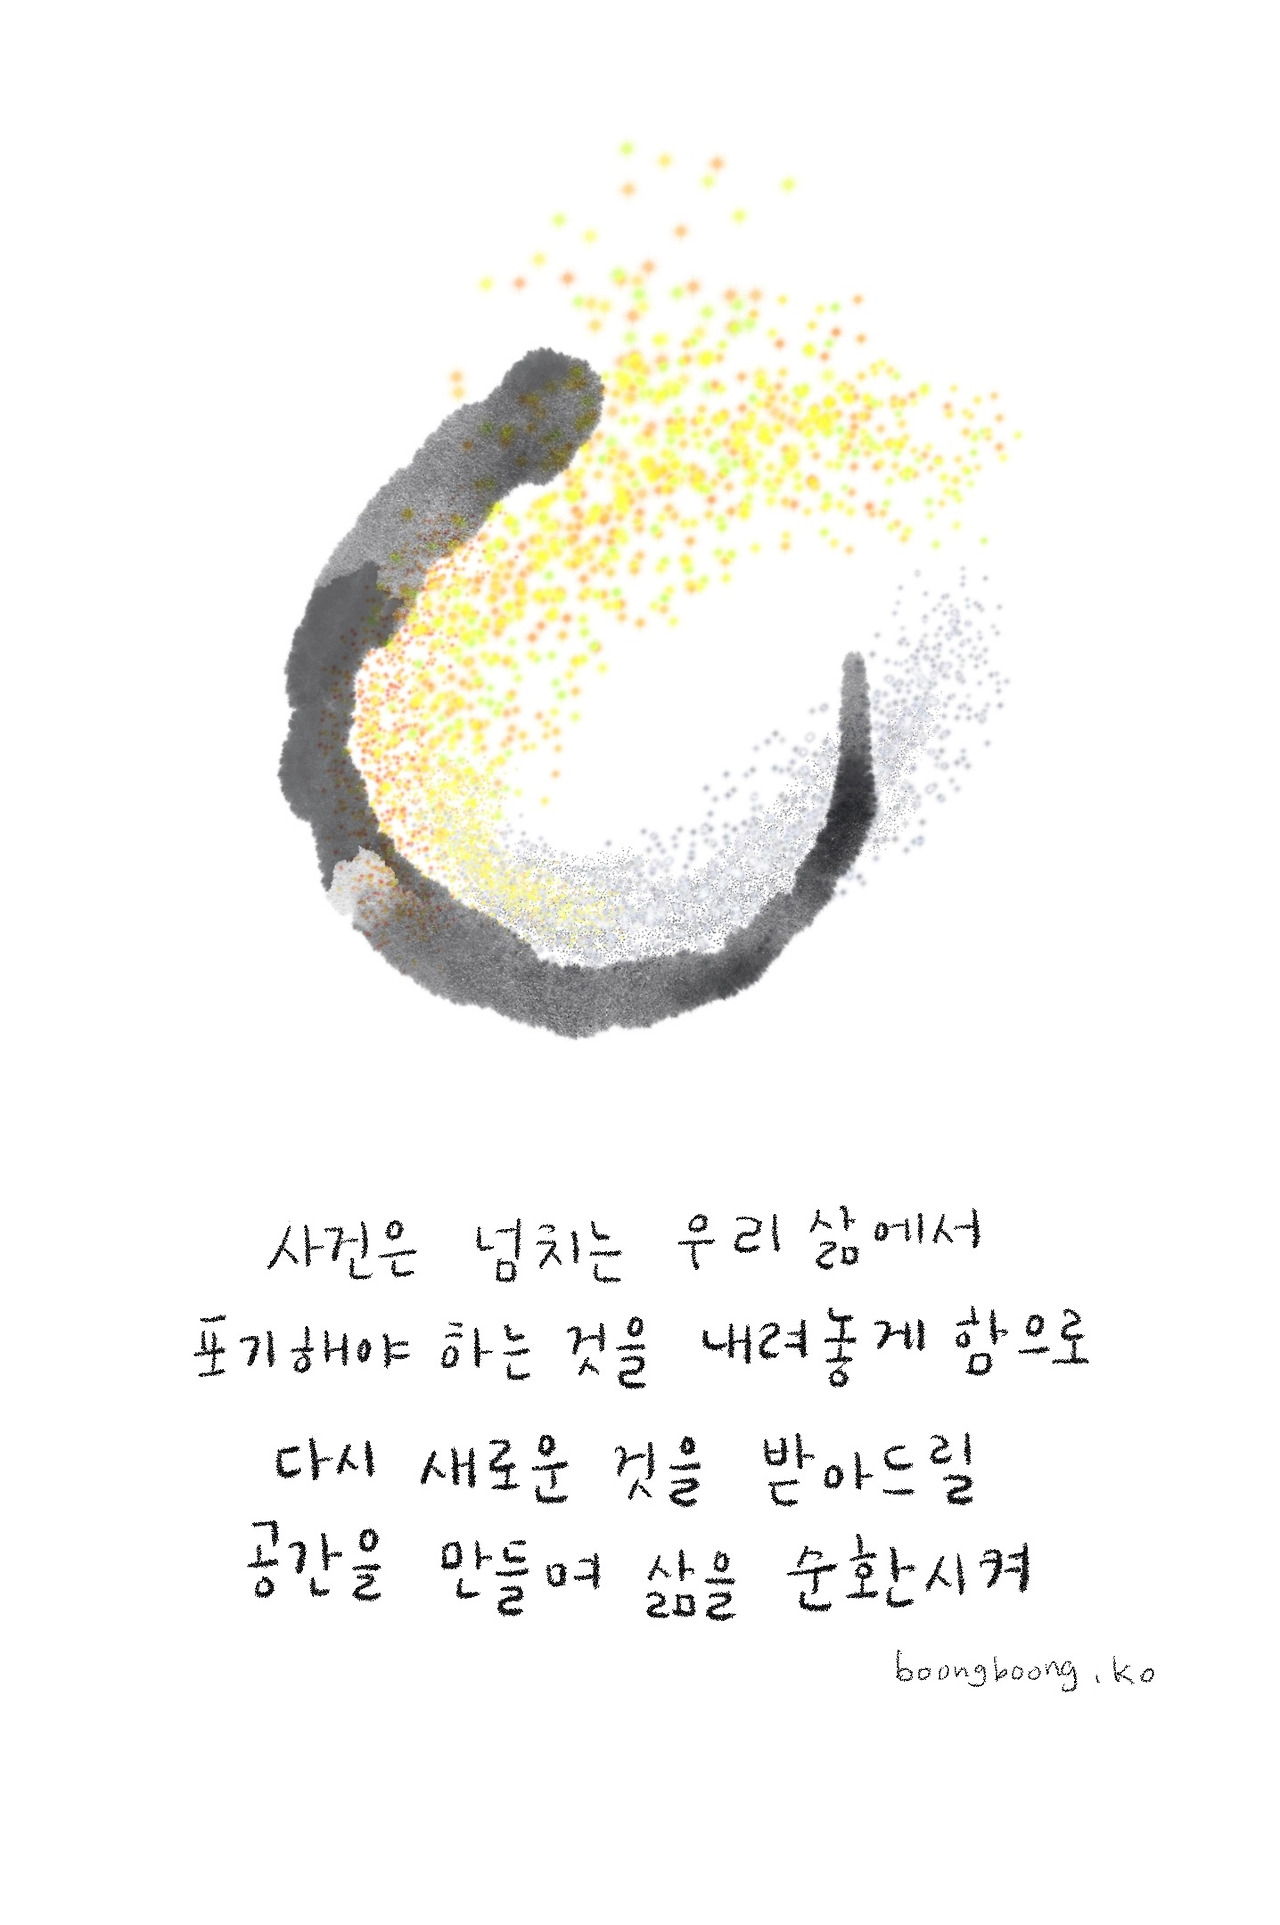 사건은 넘치는 우리 삶에서
포기해야 하는 것을 내려놓게 함으로
다시 새로운 것을 받아드릴
공간을 만들며 삶을 순환시켜
boongboong.ko